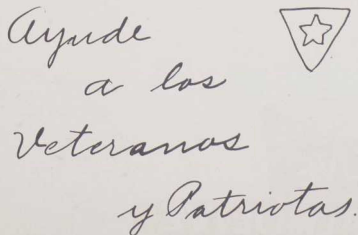 Ayude
a los
Veteranos
y Patriotas.